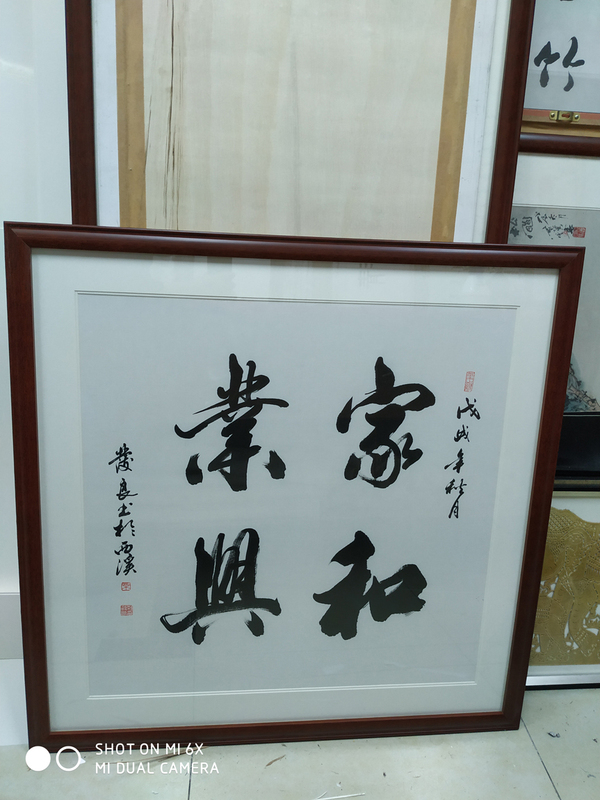 家和
業興
戊戌年秋月
發良书於西溪
竹
SHOT ON MI 6X
MI DUAL CAMERA